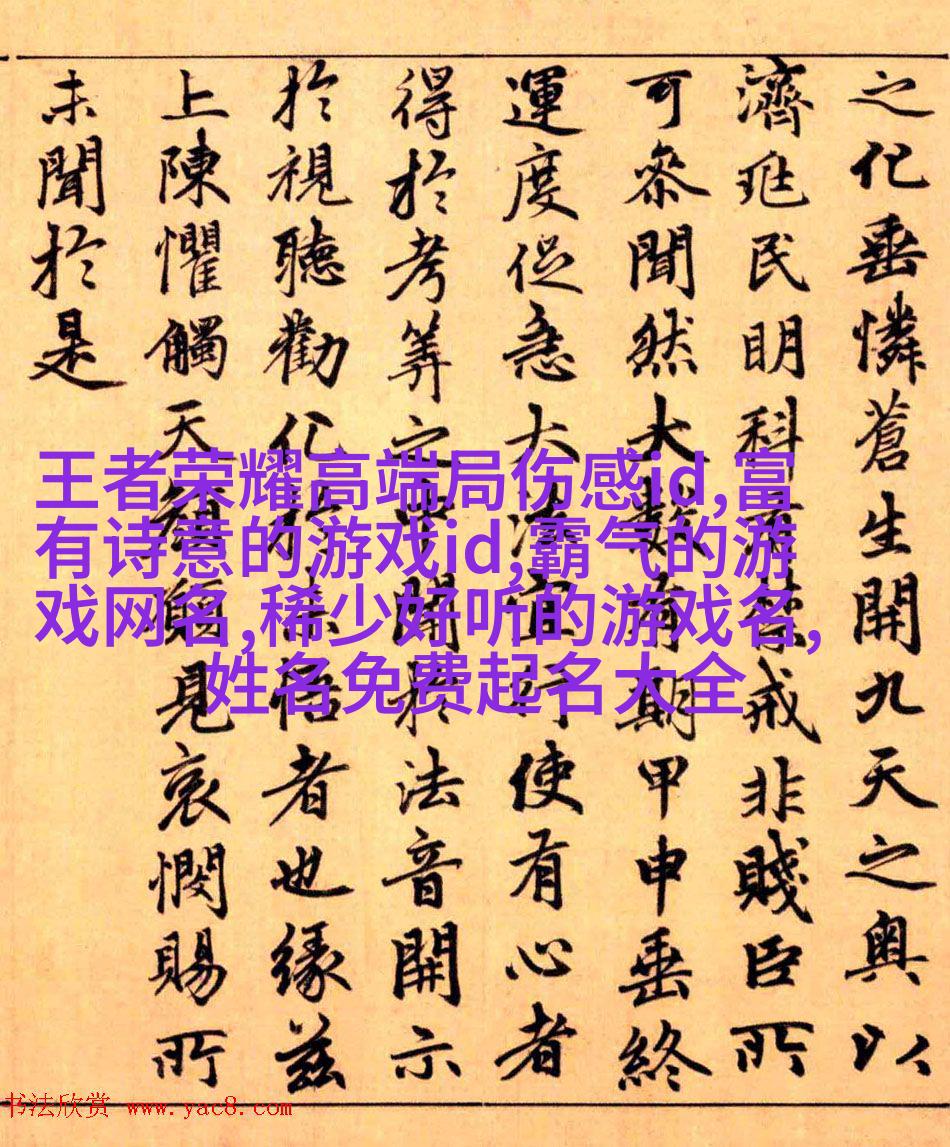 之化垂憐蒼生開九天之奥以
濟兆民明科有禁戒非賤臣所
可参聞然大數有期甲申垂終
運度促急大法宜行使有心者
得於考筭之中開於法音開示
於視聽勸化於未悟者也緣兹
上陳懼觸天顏願見哀憫賜所
未聞於是
王者荣耀高端局伤感id,富
有诗意的游戏id,霸气的游
戏网名,稀少好听的游戏名,
姓名免费起名大全
书法欣赏 www.yac8.com